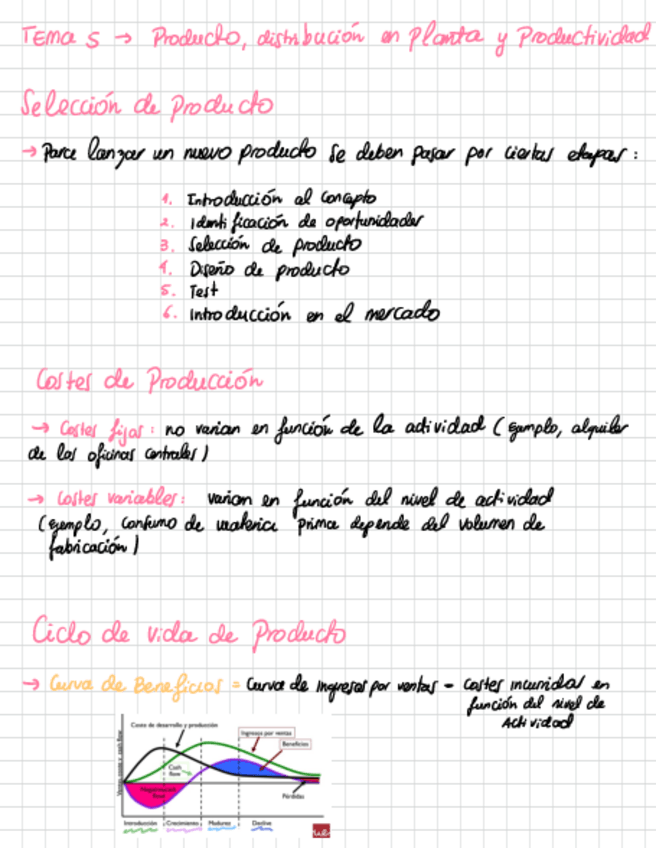 Tema 5 → Producto, distribución en Planta y Productividad
Selección de Producto
→ Para lanzar un nuevo producto se deben pasar por ciertas etapas:
1. Introducción al concepto
2. Identificación de oportunidades
3. Selección de producto
4. Diseño de producto
5. Test
6. Introducción en el mercado
Costes de Producción
→ Costes fijos: no varian en función de la actividad (ejemplo, alquiler
de las oficinas centrales)
→ Costes variables: varian en función del nivel de actividad
(ejemplo, consumo de materia prima depende del volumen de
fabricación)
Ciclo de vida de Producto
→ Curva de Beneficios = Curva de Ingresos por ventas - costes incurridos en
función del nivel de
Actividad
Coste de desarrollo y producción
Ingresos por ventas
Beneficios
Cash
flow
Pérdidas
Introducción Crecimiento Madurez Declive
ue